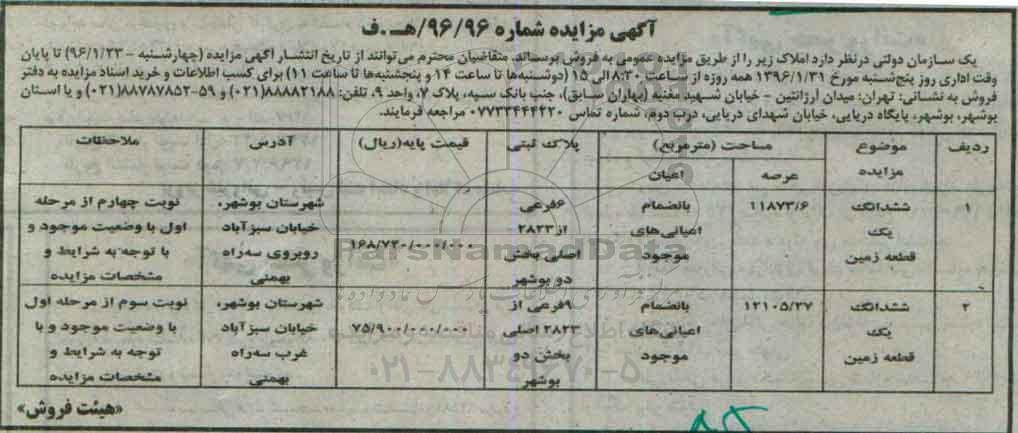 آگهی مزایده شماره ۹۶/۹۶/هـ.ف
یک سازمان دولتی درنظر دارد املاک زیر را از طریق مزایده عمومی به فروش برساند. متقاضیان محترم می‌توانند از تاریخ انتشار آگهی مزایده (چهارشنبه - ۹۶/۱/۲۳) تا پایان
وقت اداری روز پنج‌شنبه مورخ ۱۳۹۶/۱/۳۱ همه روزه از ساعت ۸:۳۰ الی ۱۵ (دوشنبه‌ها تا ساعت ۱۴ و پنجشنبه‌ها تا ساعت ۱۱) برای کسب اطلاعات و خرید اسناد مزایده به دفتر
فروش به نشانی: تهران: میدان آرژانتین - خیابان شهید مغنیه (بهاران سابق)، جنب بانک سپه، پلاک ۷، واحد ۹، تلفن: ۸۸۸۸۲۱۸۸(۰۲۱) و ۵۹-۸۸۷۸۷۸۵۲(۰۲۱) و یا استان
بوشهر، بوشهر، پایگاه دریایی، خیابان شهدای دریایی، درب دوم، شماره تماس ۰۷۷۳۳۴۴۴۲۲۰ مراجعه فرمایند.
ردیف موضوع مزایده مساحت (مترمربع) پلاک ثبتی قیمت پایه(ریال) آدرس ملاحظات
عرصه اعیان
۱ ششدانگ ۱۱۸۷۳/۶ بانضمام ۶فرعی شهرستان بوشهر، نوبت چهارم از مرحله
یک اعیانی‌های از ۲۸۲۳ ۱۶۸/۷۲۰/۰۰۰/۰۰۰ خیابان سبزآباد اول با وضعیت موجود و
قطعه زمین موجود اصلی بخش روبروی سه‌راه با توجه به شرایط و
دو بوشهر بهمنی مشخصات مزایده
۲ ششدانگ ۱۲۱۰۵/۲۷ بانضمام ۹فرعی از شهرستان بوشهر، نوبت سوم از مرحله اول
یک اعیانی‌های ۲۸۲۳ اصلی ۷۵/۹۰۰/۰۰۰/۰۰۰ خیابان سبزآباد با وضعیت موجود و با
قطعه زمین موجود بخش دو غرب سه‌راه توجه به شرایط و
بوشهر بهمنی مشخصات مزایده
«هیئت فروش»
ParsNamadData
۰۲۱-۸۸۳۴۹۶۷۰-۵